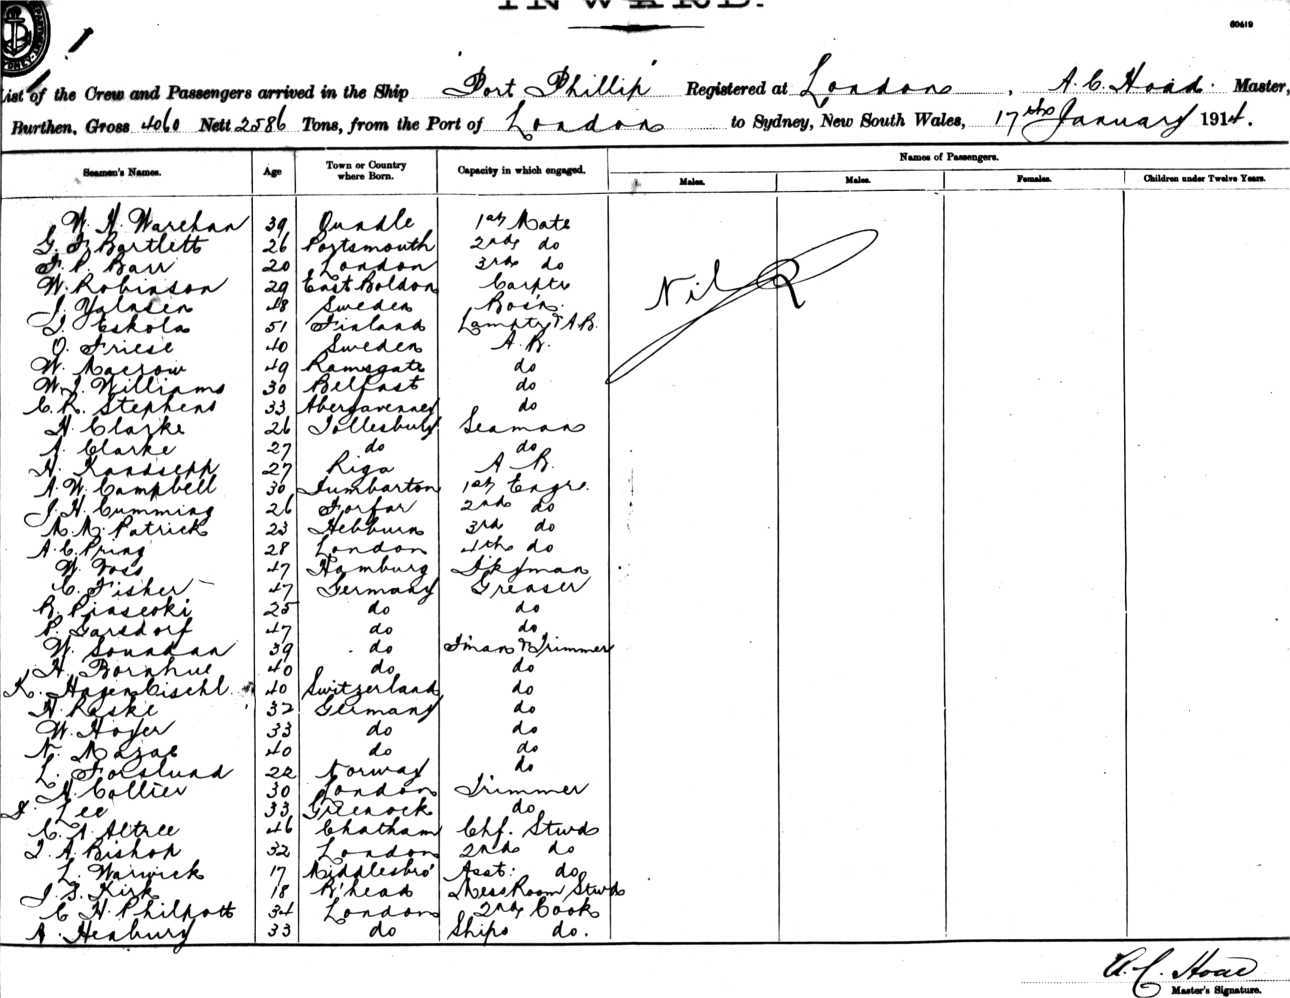 INWARD.
60619
List of the Crew and Passengers arrived in the Ship "Port Phillip" Registered at London, A. C. Hoad. Master,
Burthen, Gross 4060 Nett 2586 Tons, from the Port of London to Sydney, New South Wales, 17th January 1914.
Seamen's Names. Age Town or Country where Born. Capacity in which engaged. Names of Passengers.
Males. Males. Females. Children under Twelve Years.
W. H. Warehan 39 Oundle 1st Mate
G. F. Bartlett 26 Portsmouth 2nd do
F. P. Barr 20 London 3rd do
W. Robinson 29 East Boldon Carptr
Nil
J. 48 Sweden Bos'n.
J. Eskola 51 Finland Lamptr & A.B.
O. Friese 40 Sweden A.B.
W. Macrow 49 Ramsgate do
W. J. Williams 30 Belfast do
C. R. Stephens 33 Abergavenney do
H. Clarke 26 Tollesbury Seaman
A. Clarke 27 do do
H. Kandsepp 27 Riga A B.
A. W. Campbell 30 Dumbarton 1st Engr.
J. H. Cumming 26 Forfar 2nd do
M. M. Patrick 23 Hebburn 3rd do
A. C. Pring 28 London 4th do
W. Voss 47 Hamburg Dkyman
C. Fisher 47 Germany Greaser
B. Piasecki 25 do do
P. Garsdorf 47 do do
W. Soundan 39 do F'man & Trimmer
H. Bornhue 40 do do
K. Hagenbischl 40 Switzerland do
H. Raske 32 Germany do
W. Hoyer 33 do do
N. Mazac 40 do do
L. Forslund 22 Norway do
A. Collier 30 London Trimmer
F. Lee 33 Greenock do
C. A. Altree 46 Chatham Chf. Stwd
J. A. Bishop 32 London 2nd do
L. Warwick 17 Middlesbro' Asst. do
J. F. Kirk 18 B'head Mess Room Stwd
C. H. Philpott 34 London 2nd Cook
A. Henbury 33 do Ships do.
A. C. Hoad
Master's Signature.